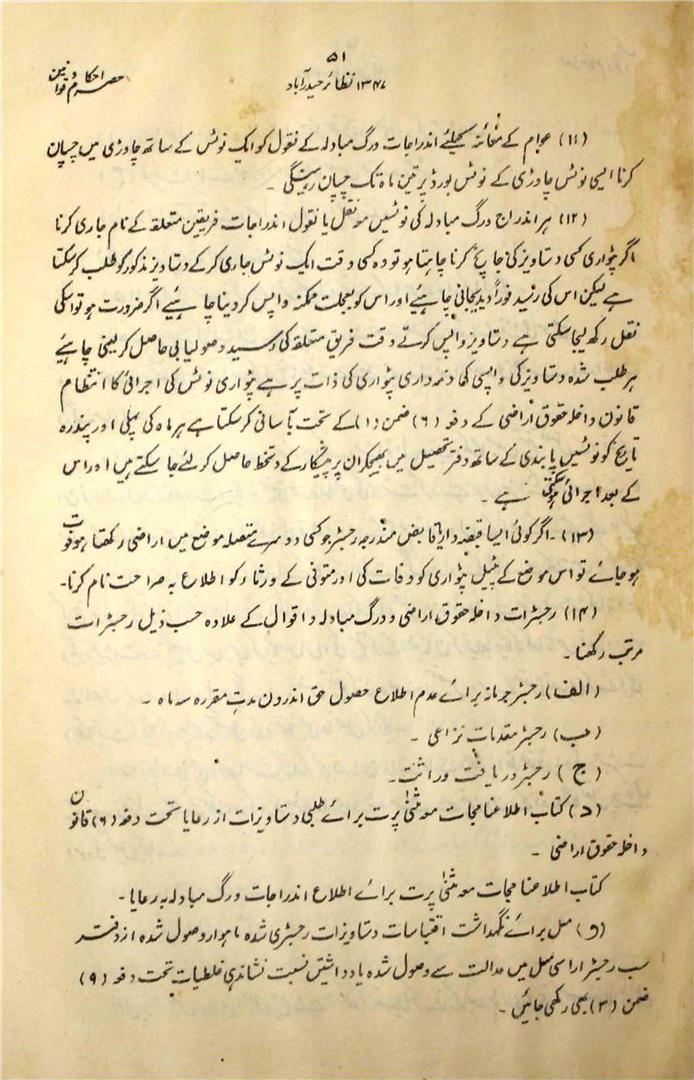 ۵۱
۱۳۴۷ نظائر حیدرآباد
حصہ سوم احکام و قوانین
(۱۱) عوام کے معائنہ کیلئے اندراجات ورگ مبادلہ کے نقول کو ایک نوٹس کے ساتھ چاوڑی میں چسپاں
کرنا ایسی نوٹس چاوڑی کے نوٹس بورڈ پر تین ماہ تک چسپاں رہینگی ۔
(۱۲) ہر اندراج ورگ مبادلہ کی نوٹسیں مونقل یا نقول اندراجات فریقین متعلقہ کے نام جاری کرنا
اگر پٹواری کسی دستاویز کی جانچ کرنا چاہتا ہو تو وہ کسی وقت ایک نوٹس جاری کر کے دستاویز مذکور کو طلب کرسکتا
ہے لیکن اس کی رسید فوراً دیدیجانی چاہئیے اور اس کو بعجلت ممکنہ واپس کردینا چاہئیے اگر ضرورت ہو تو اسکی
نقل رکھ لیجاسکتی ہے دستاویز واپس کرتے وقت فریق متعلقہ کی رسید وصولیابی حاصل کرلینی چاہئیے
ہر طلب شدہ دستاویز کی واپسی کی ذمہ داری پٹواری کی ذات پر ہے پٹواری نوٹس کی اجرائی کا انتظام
قانون داخلہ حقوق اراضی کے دفعہ (۶) ضمن (۱) کے تحت بآسانی کرسکتا ہے ہر ماہ کی پہلی اور پندرہ
تاریخ کو نوٹسیں پابندی کے ساتھ دفتر تحصیل میں بھیجکر ان پر پیشکار کے دستخط حاصل کرلئے جاسکتے ہیں اور اس
کے بعد اجرائی ہوسکتی ہے ۔
(۱۳) ۔ اگر کوئی ایسا قبضہ دار یا قابض مندرجہ رجسٹر جو کسی دوسرے متصلہ موضع میں اراضی رکھتا ہو فوت
ہوجائے تو اس موضع کے پٹیل پٹواری کو وفات کی اور متوفی کے ورثاء کو اطلاع بہ صراحت نام کرنا۔
(۱۴) رجسٹرات داخلہ حقوق اراضی و ورگ مبادلہ و اقوال کے علاوہ حسب ذیل رجسٹرات
مرتب رکھنا ۔
(الف) رجسٹر جرمانہ برائے عدم اطلاع حصول حق اندرون مدت مقررہ سہ ماہ ۔
(ب) رجسٹر مقدمات نزاعی ۔
(ج) رجسٹر دریافت وراثت ۔
(د) کتاب اطلاعنامجات معہ مثنیٰ پرت برائے طلبی دستاویزات از رعایا تحت دفعہ (۶) قانون
داخلہ حقوق اراضی ۔
کتاب اطلاعنامجات معہ مثنیٰ پرت برائے اطلاع اندراجات ورگ مبادلہ بہ رعایا ۔
(و) مسل برائے نگہداشت اقتباسات دستاویزات رجسٹری شدہ ماہوار وصول شدہ از دفتر
سب رجسٹرار اسی مسل میں عدالت سے وصول شدہ یادداشتیں نسبت نشاندہی غلطیات تحت دفعہ (۹)
ضمن (۳) بھی رکھی جائیں ۔